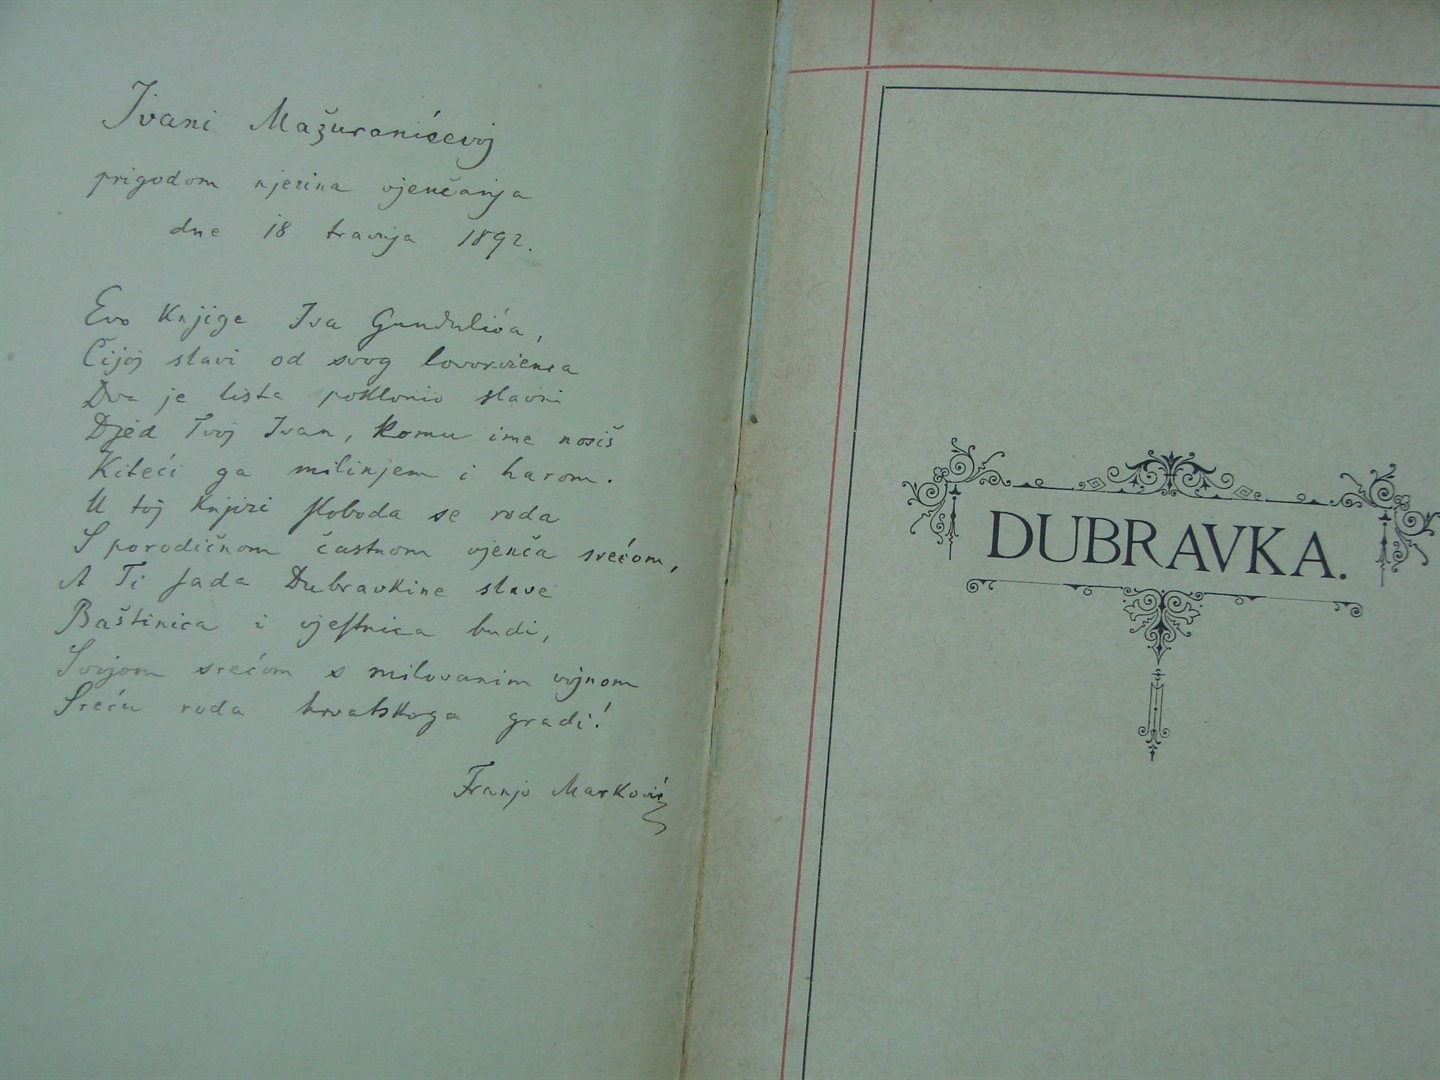 Ivani Mažuranićevoj
prigodom njezina vjenčanja
dne 18 travnja 1892.
Evo knjige Iva Gundulića,
Čijoj slavi od svog lovorvienca
Dva je lista poklonio slavni
Djed Tvoj Ivan, komu ime nosiš
Kiteći ga milinjem i harom.
U toj knjizi sloboda se rodi
S porodičnom častnom vjenča srećom,
A Ti sada Dubravkine slave
Baštinica i vjestnica budi,
Svojom srećom s milovanim vojnom
Sreću roda hrvatskoga gradi!
Franjo Marković
DUBRAVKA.